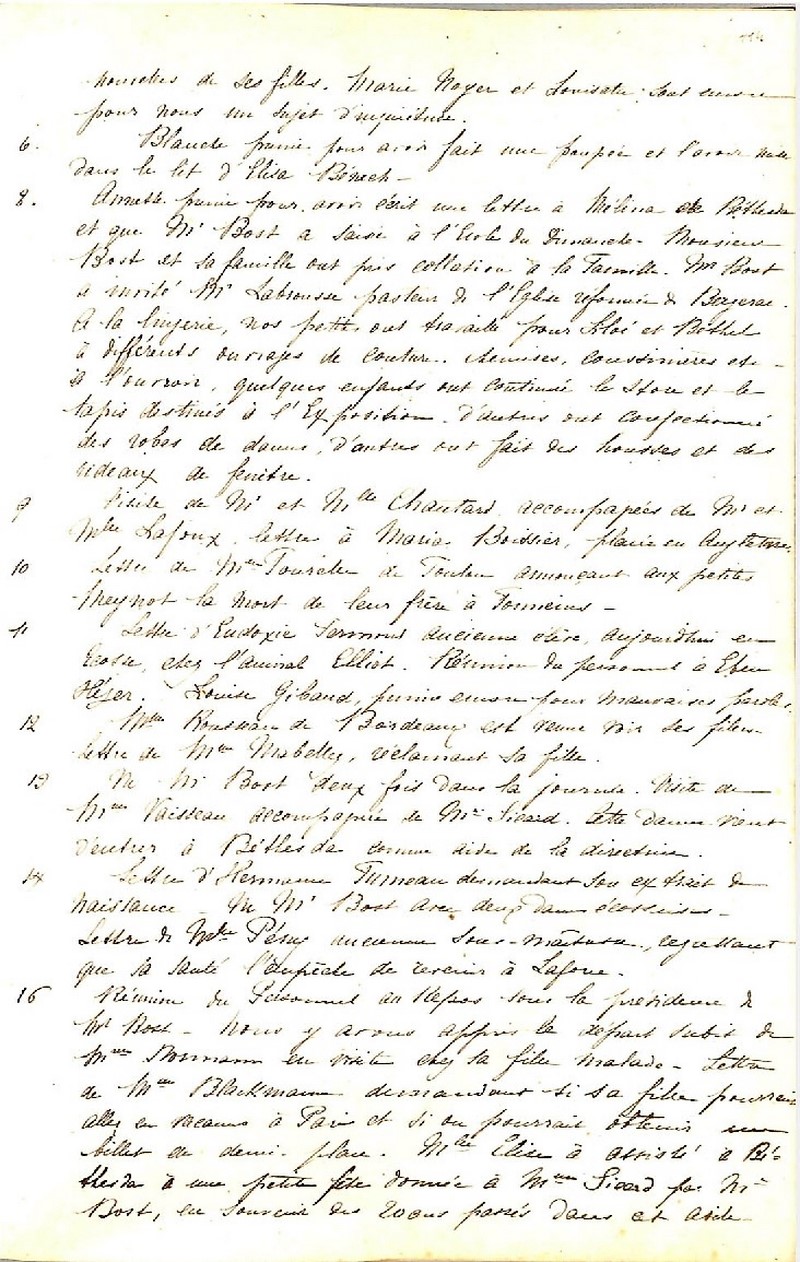 nouvelles de ses filles. Marie Noyer et Louisate sont encore
pour nous un sujet d'inquiétude.
6. Blanche punie pour avoir fait une poupée et l'avoir mise
dans le lit d'Elisa Bénech -
8. Annette punie pour avoir écrit une lettre à Mélina de Béthesda
et que Mr Bost a saisie à l'Ecole du Dimanche - Monsieur
Bost et sa famille ont pris collation à la Famille. Mr Bost
a invité Mr Labrousse pasteur de l'Eglise réformée de Bergerac.
A la lingerie, nos petites ont travaillé pour Siloé et Béthel
à différents ouvrages de couture. chemises, coussinières etc -
à l'ouvroir, quelques enfants ont continué le store et le
tapis destinés à l'Exposition. D'autres ont confectionné
des robes de dames, d'autres ont fait des housses et des
rideaux de fenêtre.
9 Visite de Mr et Mde Chautard accompagnées de Mr et
Mlle Lafoux. lettre à Maria Boissier, placée en Angleterre.
10 Lettre de Mme Tourelle de Toulon annonçant aux petites
Meynot la mort de leur frère à Tonneins -
11 Lettre d'Eudoxie Sermont ancienne élève, aujourdhui en
Ecosse, chez l'amiral Elliot. Réunion du personnel à Eben
Hézer. Louise Gibaud, punie encore pour mauvaises paroles.
12 Mme Rousseau de Bordeaux est venue voir ses filles.
Lettre de Mme Mabelly, réclamant sa fille.
13 Vu Mr Bost deux fois dans la journée. Visite de
Mme Vaisseau accompagnée de Mme Sicard. Cette dame vient
d'entrer à Béthesda comme aide de la directrice.
14 Lettre d'Hermance Tumeau demandant son extrait de
naissance - Vu Mr Bost avec deux dames écossaises -
Lettre de Mlle Pésny ancienne sous-maîtresse, regrettant
que sa santé l'empêche de revenir à Laforce.
16 Réunion du Personnel au Repos sous la présidence de
Mr Bost - Nous y avons appris le départ subit de
Mme en visite chez sa fille malade - Lettre
de Mme Blackmann demandant si sa fille pourrait
aller en vacances à Paris et si on pourrait obtenir un
billet de demi-place. Mlle Elise a assisté à Bé-
thesda à une petite fête donnée à Mme Sicard par Mr
Bost, en souvenir des 20 ans passés dans cet asile